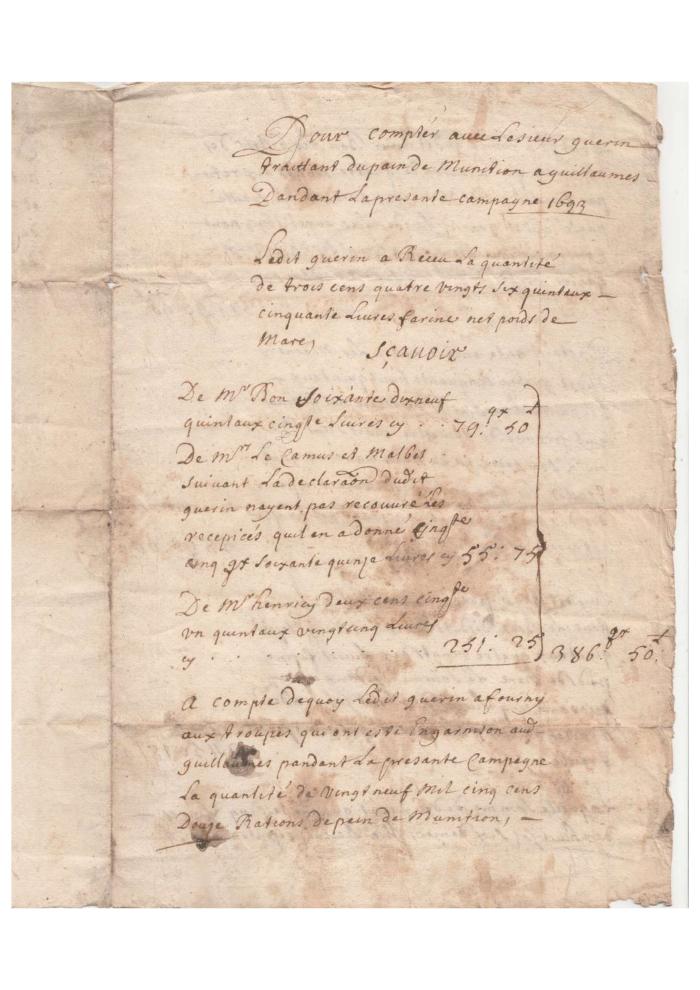 Pour comptér avec Lesieur guerin
traittant du pain de Munition a guillaumes
Pandant La presante campagne 1693
Ledit guerin a Receu La quantité
de trois cens quatre vingts six quintaux
cinquante Livres farine net poids de
Marc,
sçavoir
De Mr Bon Soixante dixneuf
quintaux cinqte Livres cy . . 79. qx 50 l
De Mrs Le Camus et Malbes
suivant La declaraon dudit
guerin nayent pas recouvré les
recepicés quil en a donné cinqte
cinq qx soixante quinze Livres cy 55: 75
De Mr henricy deux cens cinqte
vn quintaux vingtcinq Livres
cy . . . . . 251: 25 386. qx 50. l
A compte dequoy Ledit guerin a fourny
aux troupes qui ont esté Engarnison aud
guillaumes pandant La presante Campagne
La quantité de vingt neuf Mil cinq cens
Douze Rations de pein de Munition, —